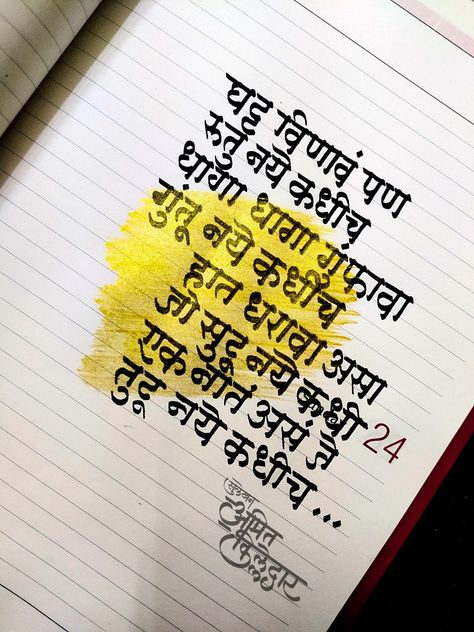 घट्ट विणावं पण
रुतु नये कधीच
धागा धागा गुंफावा
गुंतू नये कधीच
हात धरावा असा
जो सुटू नये कधी
एक नातं असं ते
तुटू नये कधीच...
24
सुलेखन
अमित
किल्लेदार